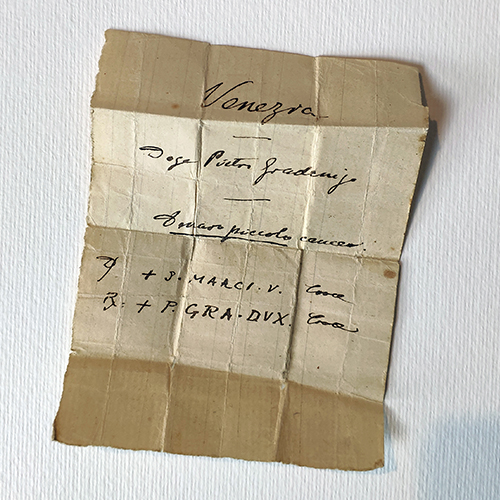 Venezia
Doge Pietro Gradenigo
Denaro piccolo
+ S. MARCI. V. Croce
+ P. GRA. DVX. Croce